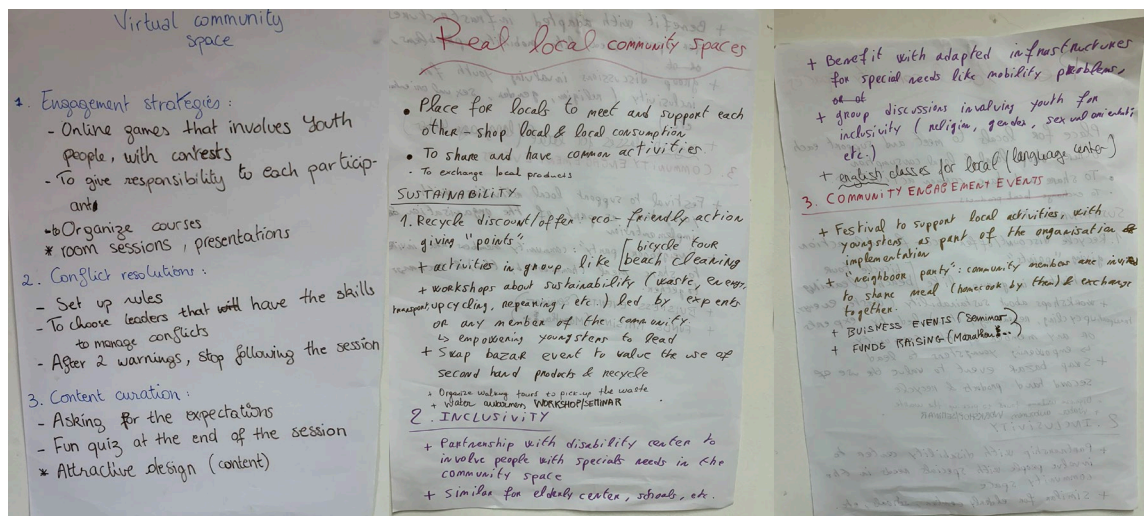 Virtual community
space
1. Engagement strategies :
- Online games that involves Youth
people, with contests
- To give responsibility to each particip-
ant
Organize courses
* room sessions, presentations
2. Conflict resolutions :
- Set up rules
- To choose leaders that have the skills
to manage conflicts
- After 2 warnings, stop following the session
3. Content curation :
- Asking for the expectations
- Fun quiz at the end of the session
* Attractive design (content)
Real local community spaces
• Place for locals to meet and support each
other - shop local & local consumption
• To share and have common activities.
- To exchange local products
SUSTAINABILITY
1. Recycle discount/offer eco-friendly action
giving "points"
+ activities in group like [bicycle tour
beach cleaning
+ workshops about sustainability (waste, energy,
transport, upcycling, repairing, etc.) led by experts
or any member of the community
↳ empowering youngsters to lead
+ Swap bazar event to value the use of
second hand products & recycle
+ Organize walking tours to pick-up the waste
+ Water WORKSHOP/SEMINAR
2. INCLUSIVITY
+ Partnership with disability center to
involve people with specials needs in the
community space
+ Similar for elderly center, schools, etc.
+ Benefit with adapted infrastructures
for special needs like mobility problems,
+ group discussions involving youth for
inclusivity (religion, gender, sexual orientati
etc.)
+ english classes for local (language center)
3. COMMUNITY ENGAGEMENT EVENTS
+ Festival to support local activities, with
youngsters as part of the organisation &
implementation
+ "neighboor party": community member are
to share meal (homecook by them) & exchange
together.
+ BUISNESS EVENTS (Seminar)
+ FUNDS RAISING (Marathon...)